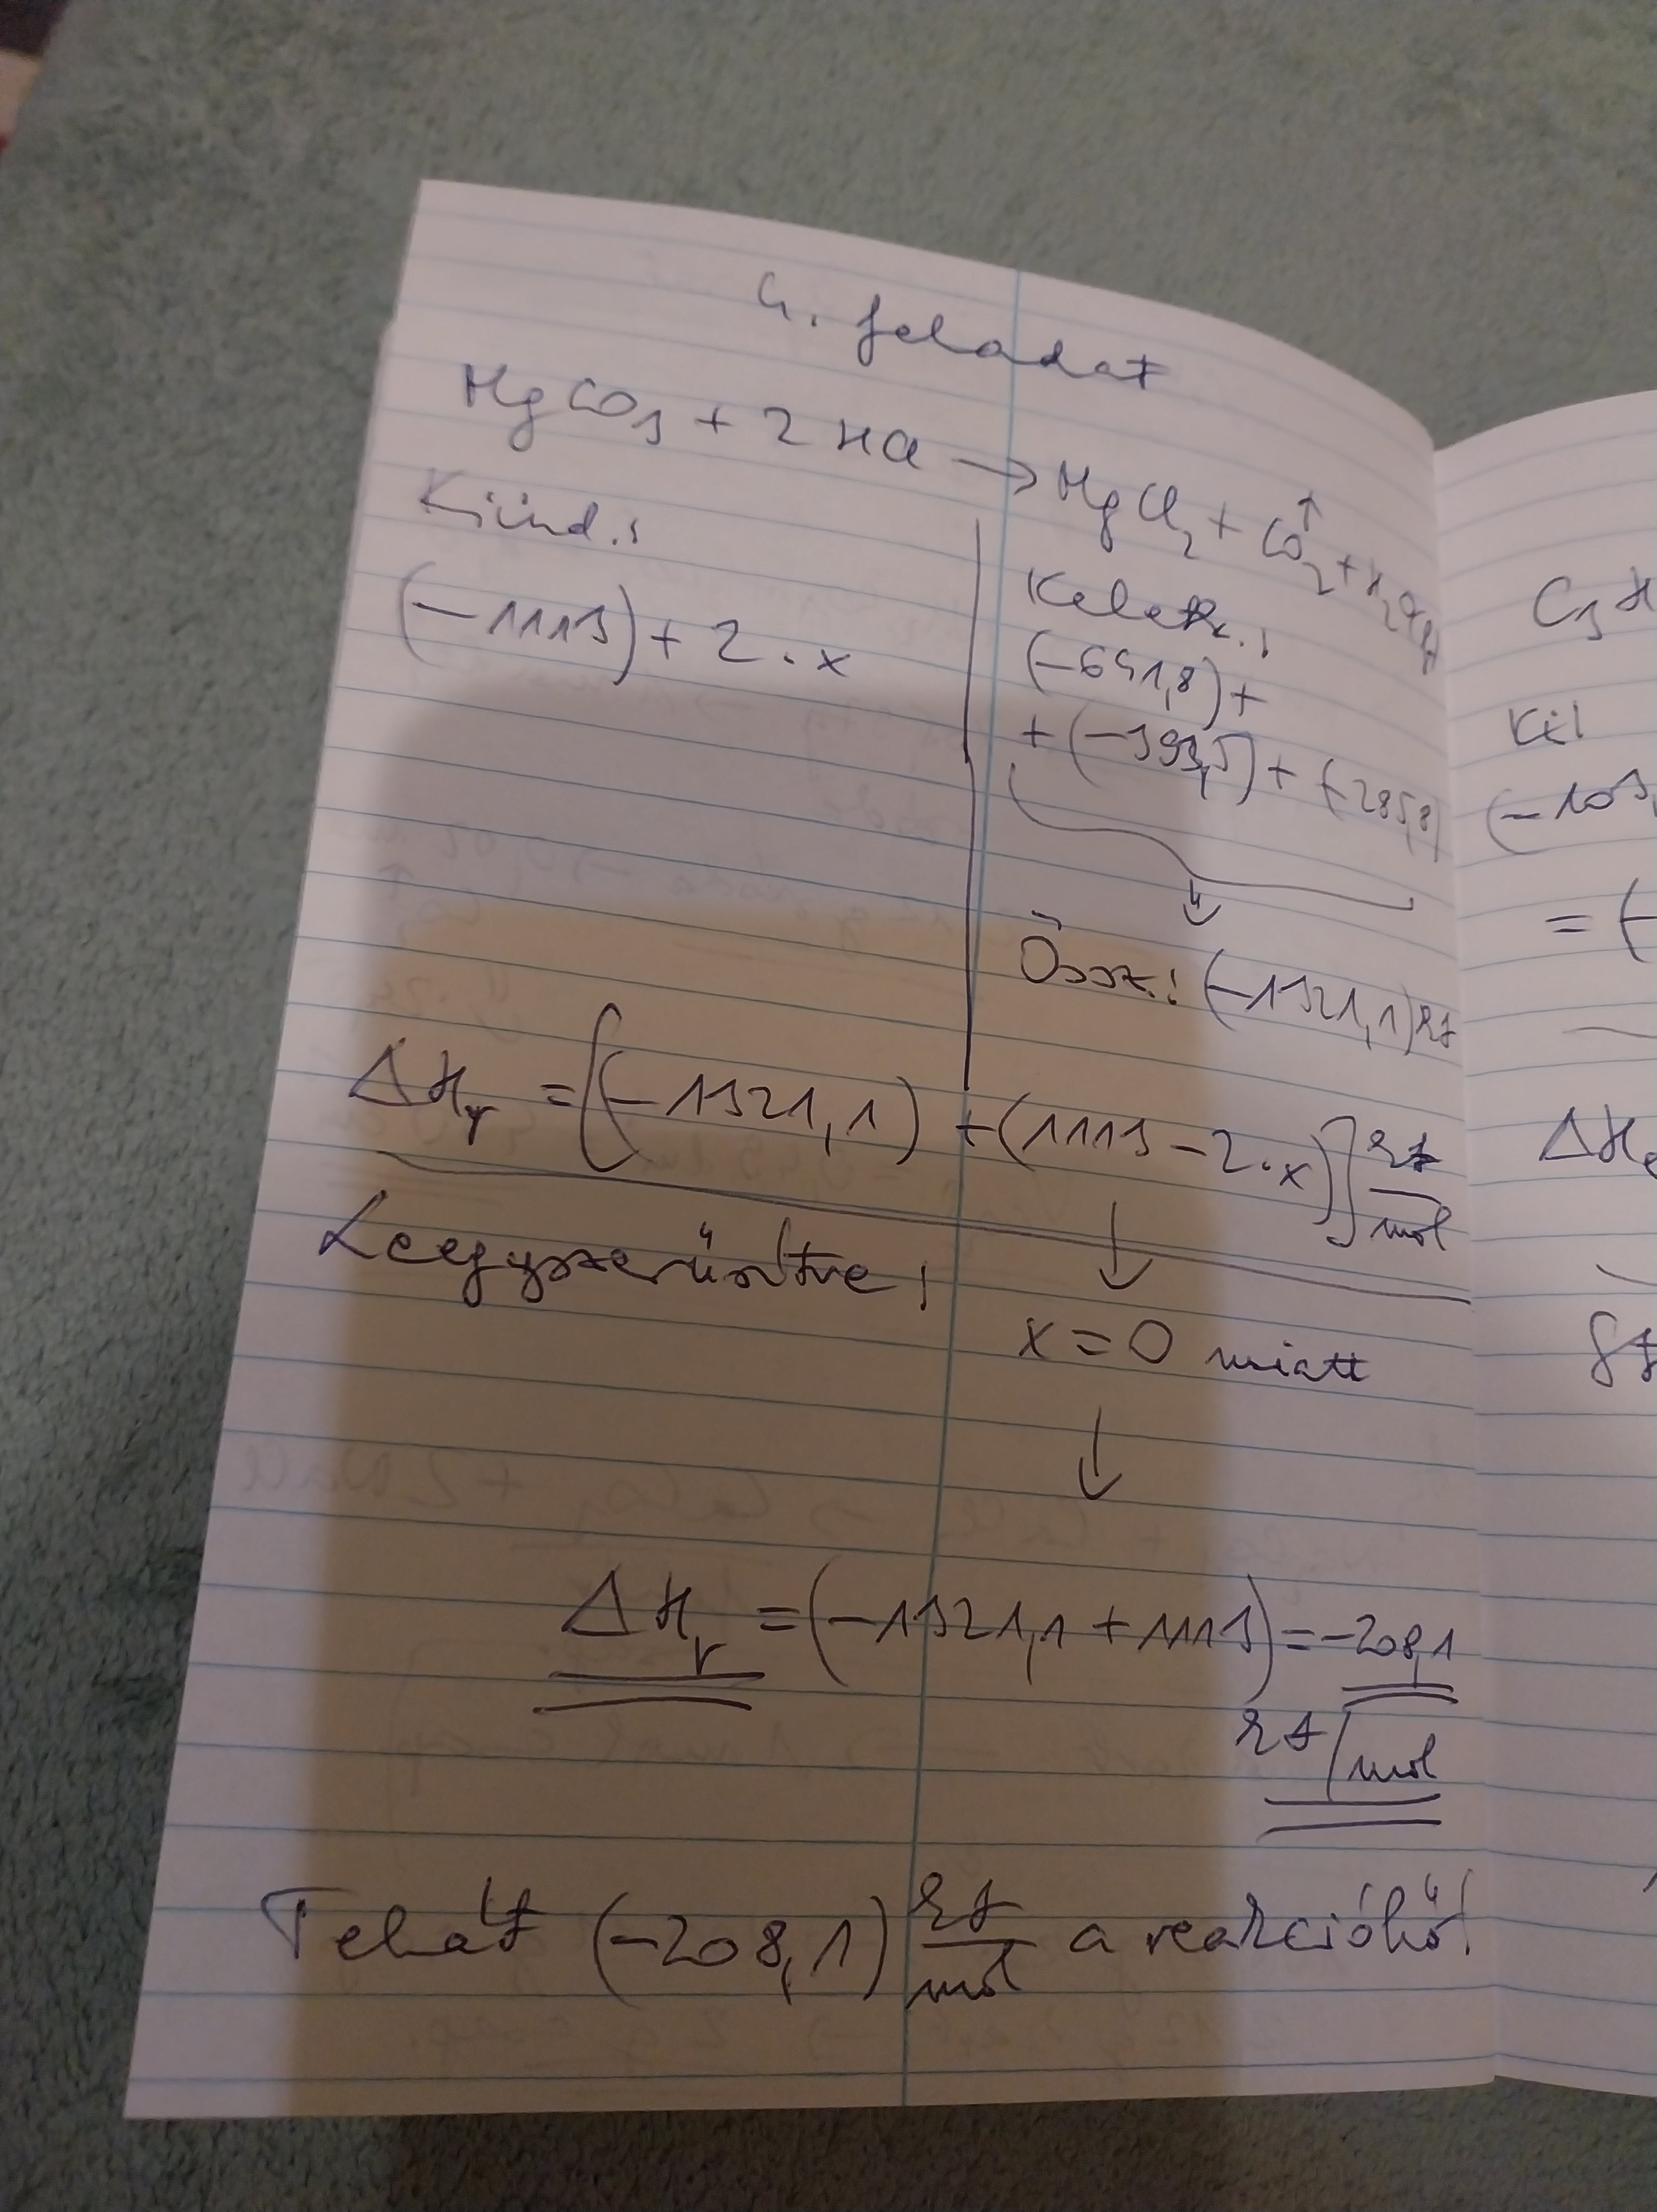 4. feladat
MgCO3 + 2 HCl → MgCl2 + CO2↑ + H2O
Kiind.:
(-1113) + 2 · x
Keletk.:
(-641,8) +
+ (-393,5) + (-285,8)
Össz.: (-1321,1) kJ
ΔHr = [(-1321,1) + (1113 - 2 · x)] kJ/mol
Leegyszerűsítve:
x = 0 miatt
ΔHr = (-1321,1 + 1113) = -208,1
kJ/mol
Tehát (-208,1) kJ/mol a reakcióhő!
C3H
Kii
(-103,
= (-
ΔH